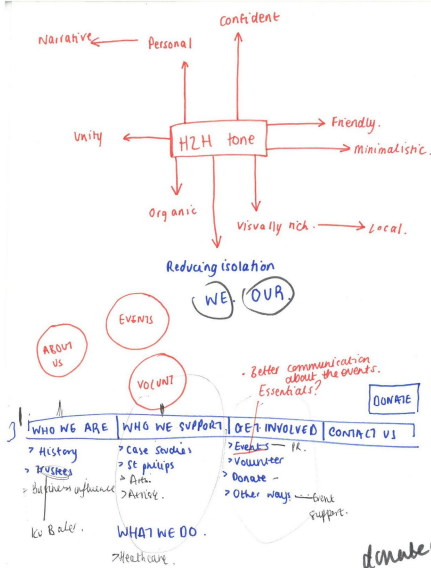 Confident
Narrative
Personal
Unity
H2H tone
Friendly.
Minimalistic.
Organic
Visually rich.
Local.
Reducing isolation
WE. OUR.
EVENTS
ABOUT
US
VOLUNT
• Better communication
about the events.
Essentials?
DONATE
WHO WE ARE
WHO WE SUPPORT
GET INVOLVED
CONTACT US
> History
> Trustees
> Business influence
> Case Studies
> St philips
> Events — PR.
> Volunteer
> Donate -
> Other ways — Event
support.
WHAT WE DO.
> Heathcare.
donate